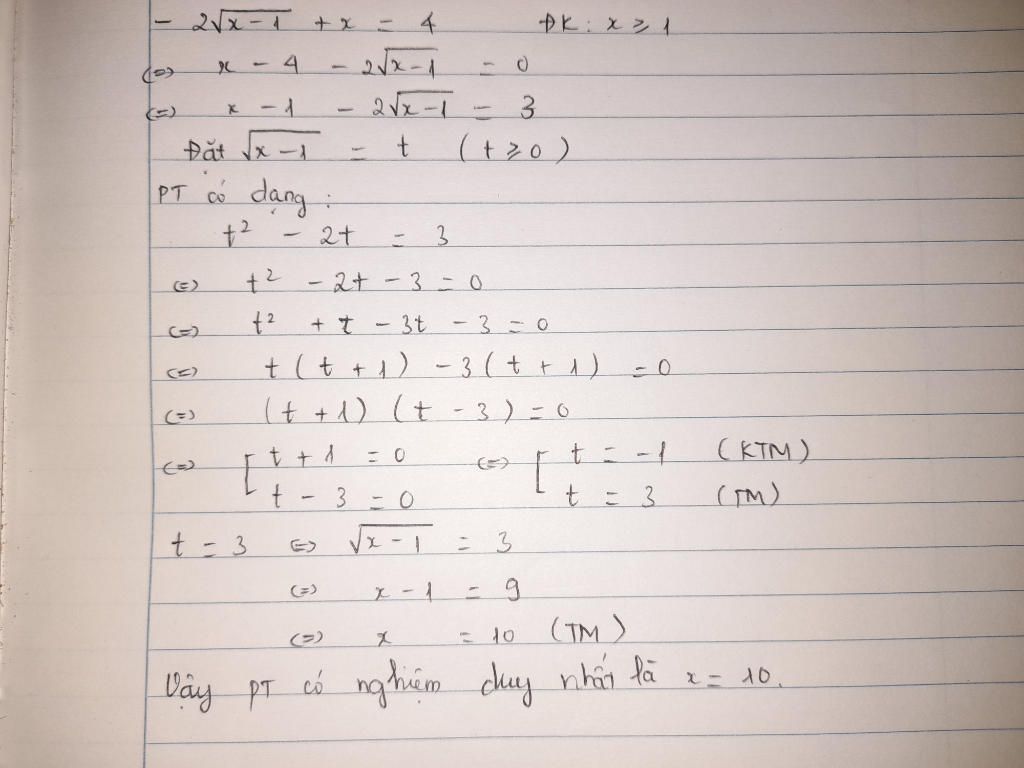 - 2√(x-1) + x = 4 ĐK: x ≥ 1
(=) x - 4 - 2√(x-1) = 0
(=) x - 1 - 2√(x-1) = 3
Đặt √(x-1) = t (t ≥ 0)
PT có dạng:
t² - 2t = 3
(=) t² - 2t - 3 = 0
(=) t² + t - 3t - 3 = 0
(=) t(t + 1) - 3(t + 1) = 0
(=) (t + 1)(t - 3) = 0
(=) [ t + 1 = 0 (=) [ t = -1 (KTM)
t - 3 = 0 t = 3 (TM)
t = 3 (=) √(x-1) = 3
(=) x - 1 = 9
(=) x = 10 (TM)
Vậy PT có nghiệm duy nhất là x = 10.